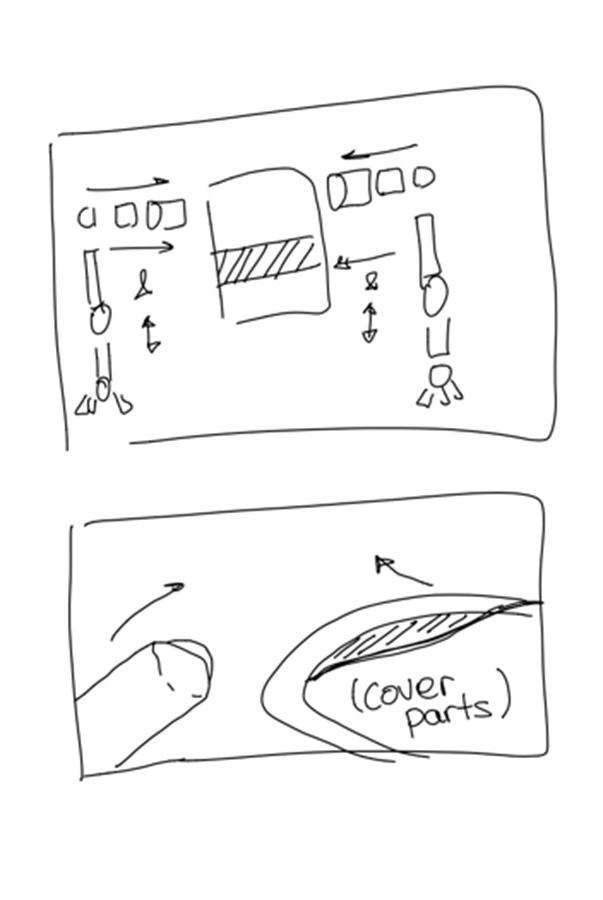 &
&
(cover
parts)